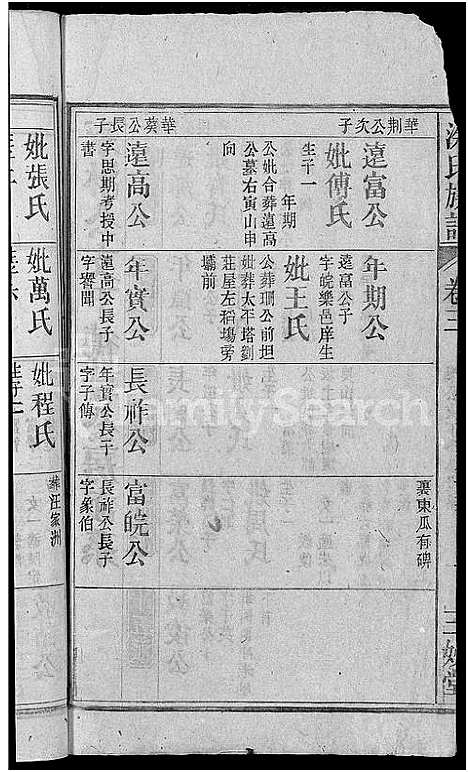 氏族譜
卷三
三
堂
華荆公次子
遠富公
妣傅氏
生子一
年期
公妣合葬遠高
公墓右寅山申
向
華葵公長子
遠高公
字思期考授中
書
年期公
遠富公子
字皖樂邑庠生
妣王氏
公葬珊公前坦
妣葬太平塔劉
莊屋左稻塲旁
墈前
年實公
遠高公長子
字譽聞
長祚公
年實公長子
字子傳
裏東瓜有碑
富皖公
長祚公長子
字象伯
妣張氏
妣萬氏
妣程氏
生子一
葬汪家洲
FamilySearch